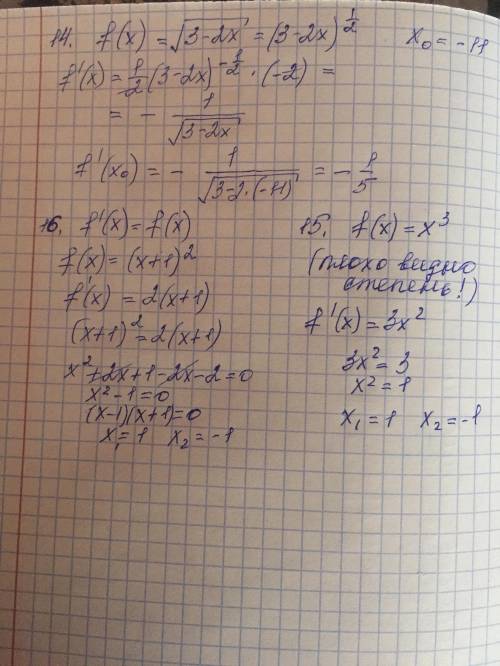 14. f(x) = √(3-2x) = (3-2x)^(1/2) x₀ = -11
f'(x) = 1/2 (3-2x)^(-1/2) · (-2) =
= - 1/√(3-2x)
f'(x₀) = - 1/√(3-2·(-11)) = - 1/5
16. f'(x) = f(x)
f(x) = (x+1)²
f'(x) = 2(x+1)
(x+1)² = 2(x+1)
x² + 2x + 1 - 2x - 2 = 0
x² - 1 = 0
(x-1)(x+1) = 0
x₁ = 1 x₂ = -1
15. f(x) = x³
(плохо видно
степень!)
f'(x) = 3x²
3x² = 3
x² = 1
x₁ = 1 x₂ = -1